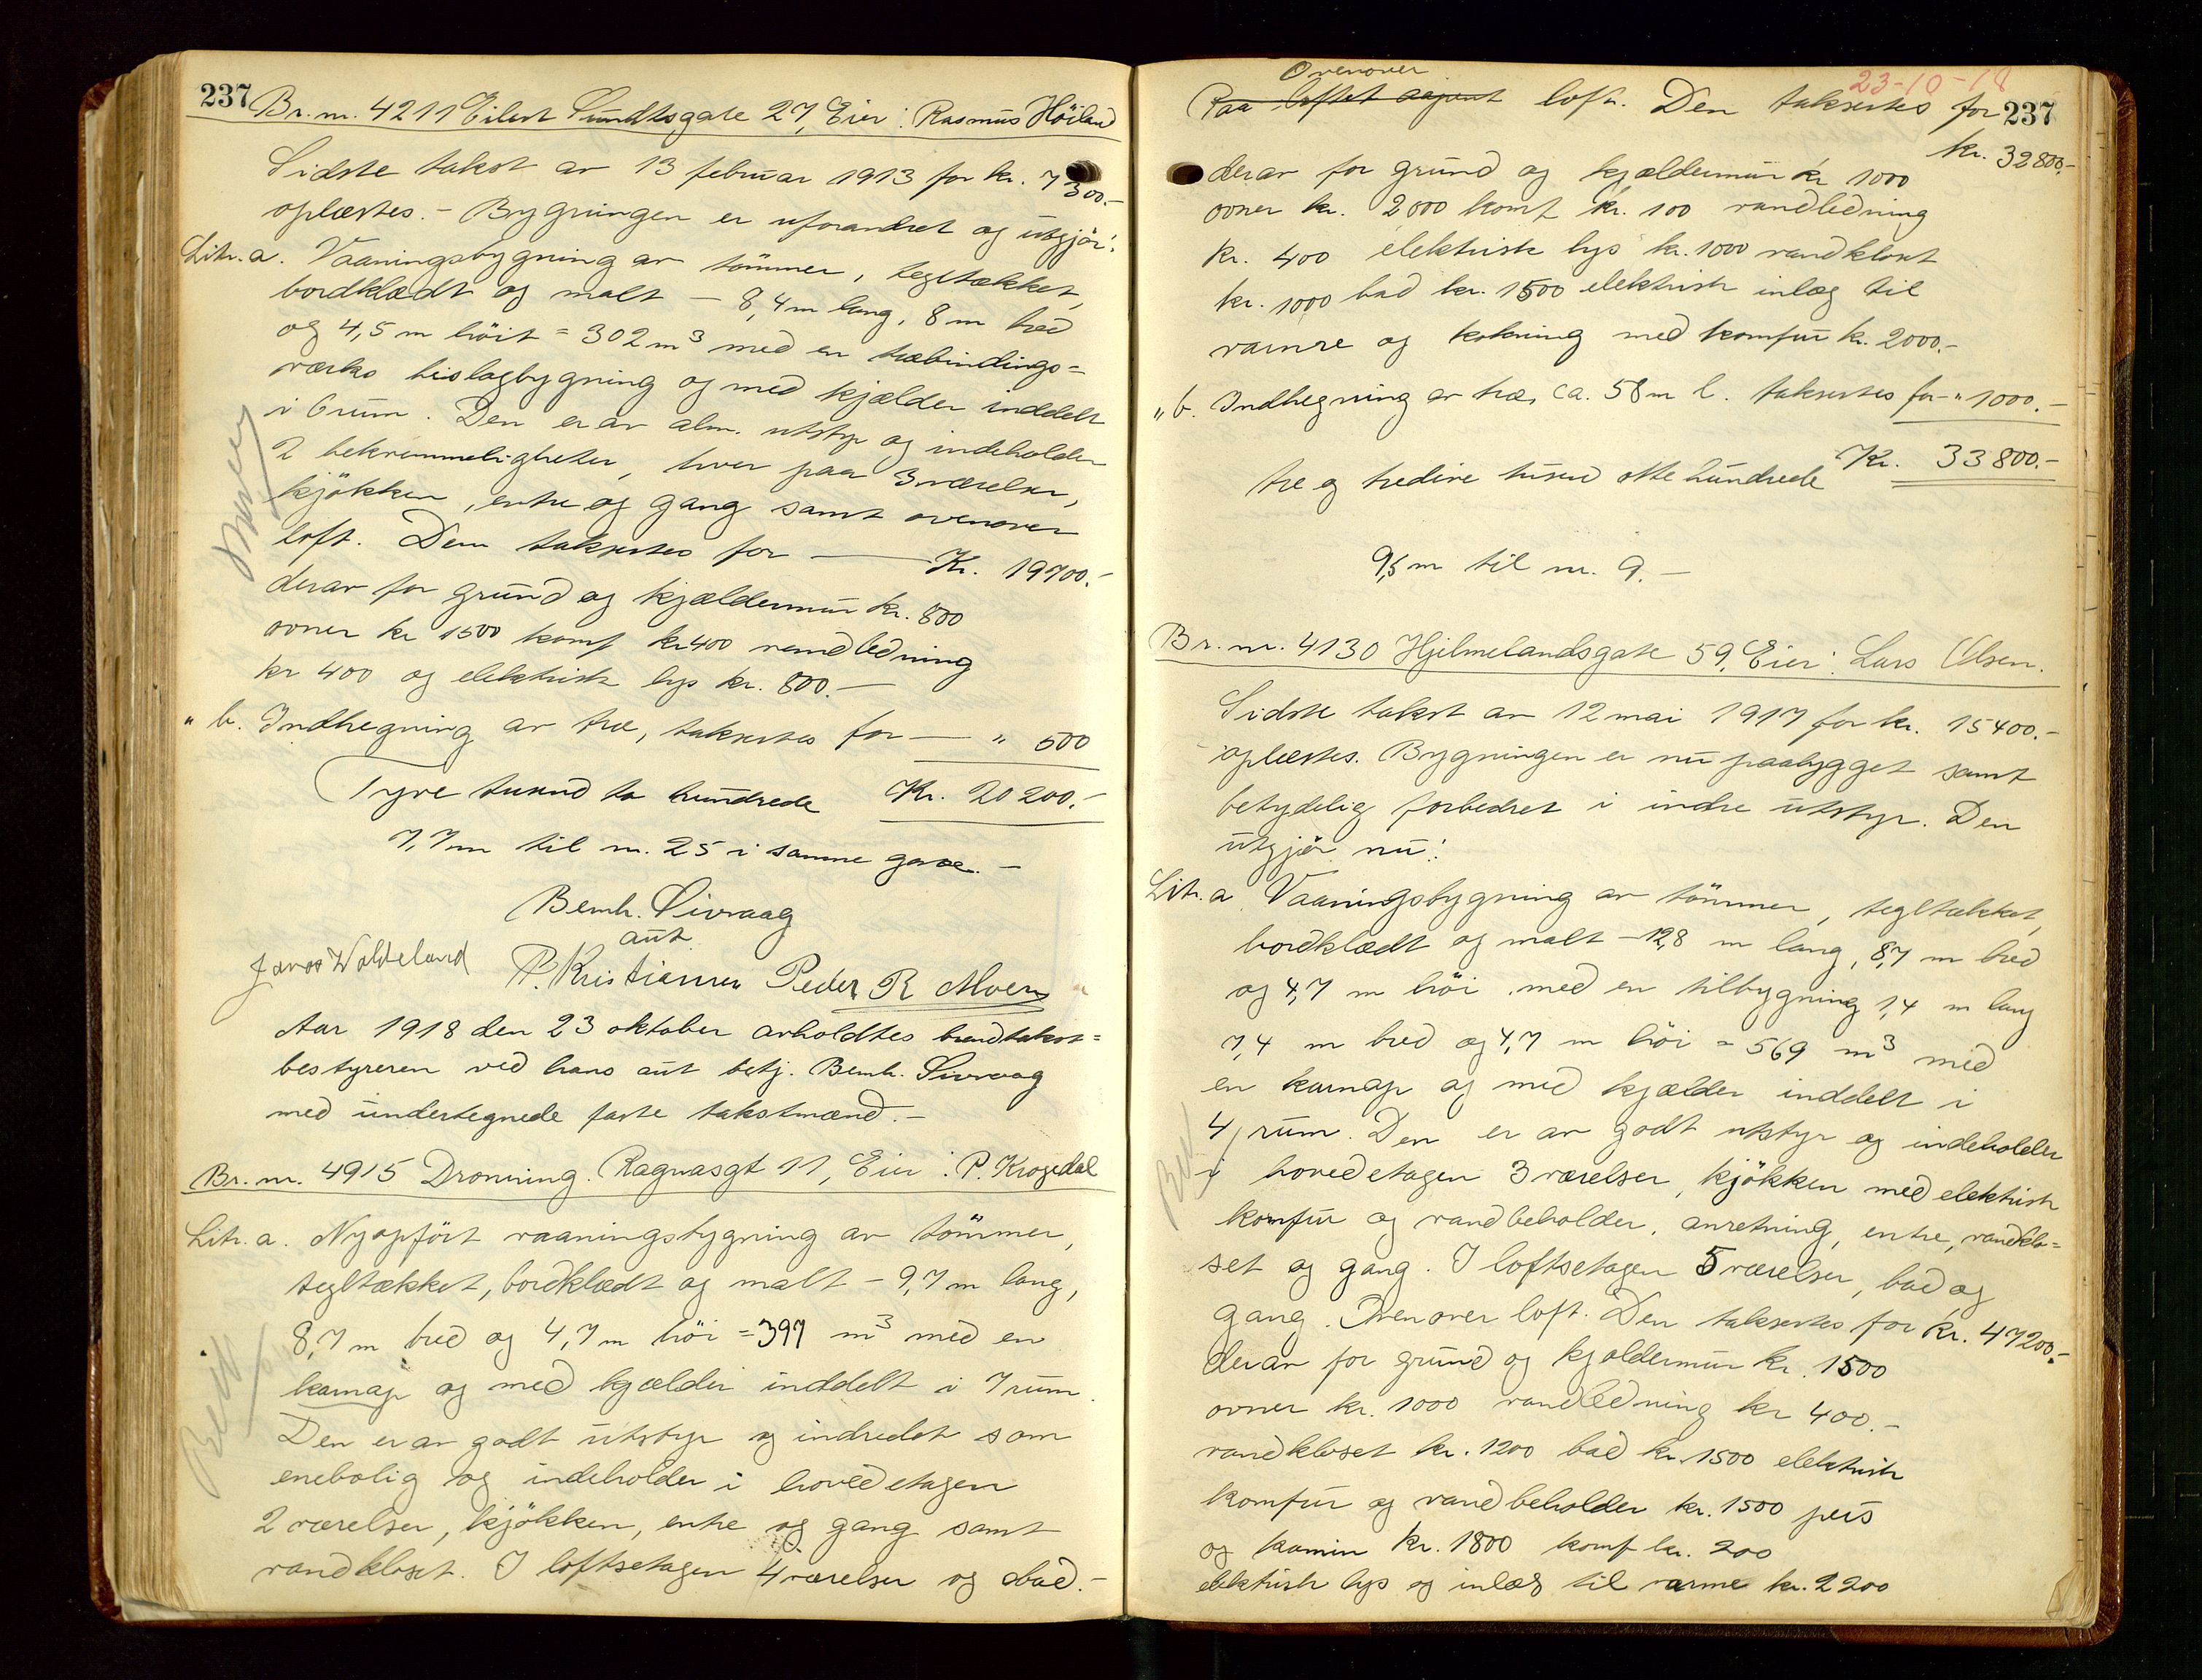 237
Br. nr. 4211 Eilert Sundtsgate 27, Eier: Rasmus Höiland
Sidste takst av 13 februar 1913 for kr. 7300.-
oplæstes. - Bygningen er uforandret og utgjör:
Litr. a. Vaaningsbygning av tömmer, tegltækket,
bordklædt og malt - 8,4 m lang, 8 m bred
og 4,5 m höit = 302 m³ med en træbindings=
verks bislagbygning og med kjælder inddelt
i 6 rum. Den er av alm. utstyr og indeholder
2 bekvemmeligheter, hver paa 3 værelser,
kjökken, entre og gang samt ovenover
loft. Den takseres for — Kr. 19700.-
derav for grund og kjældermur kr. 800
ovner kr 1500 komf kr 400 vandledning
kr 400 og elektrisk lys kr. 800.-
" b. Indhegning av træ, takseres for — " 500
Tyve tusend to hundrede Kr. 20200.-
7,7 m til nr. 25 i samme gate. -
Bernh. Sivraag
aut.
Jonas Waldeland P. Kristiansen Peder R Moen
Aar 1918 den 23 oktober avholdtes brandtakst=
bestyreren ved hans aut betj. Bernh. Sivraag
med undertegnede faste takstmænd. -
Br. nr. 4915 Dronning. Ragnasgt 11, Eier: P. Krogedal
Litr. a. Nyopfört vaaningsbygning av tömmer,
tegltækket, bordklædt og malt - 9,7 m lang,
8,7 m bred og 4,7 m höi = 397 m³ med en
karnap og med kjælder inddelt i 7 rum.
Den er av godt utstyr og indredet som
enebolig og indeholder i hovedetagen
2 værelser, kjökken, entre og gang samt
vandkloset. I loftsetagen 4 værelser og bad.-
23-10-18
237
Ovenover
Paa loftet loft. Den takseres for
kr. 32800.-
derav for grund og kjældermur kr 1000
ovner kr. 2000 komf kr. 100 vandledning
kr. 400 elektrisk lys kr. 1000 vandkloset
kr. 1000 bad kr. 1500 elektrisk inlæg til
varme og kokning med komfur kr. 2000.-
" b. Indhegning av træ, ca. 58 m l. takseres for - " 1000.-
Kr. 33800.-
tre og tredive tusen otte hundrede
9,5 m til nr. 9. -
Br. nr. 4130 Hjelmelandsgate 59, Eier: Lars Olsen.
Sidste takst av 12 mai 1917 for kr. 15400.-
oplæstes. Bygningen er nu paabygget samt
betydelig forbedret i indre utstyr. Den
utgjör nu:
Litr. a. Vaaningsbygning av tömmer, tegltækket,
bordklædt og malt - 12,8 m lang, 8,7 m bred
og 4,7 m höi med en tilbygning 1,4 m lang
7,4 m bred og 4,7 m höi = 569 m³ med
en karnap og med kjælder inddelt i
4 rum. Den er av godt utstyr og indeholder
i hovedetagen 3 værelser, kjökken med elektrisk
komfur og vandbeholder, anretning, entre, vandklo=
set og gang. I loftsetagen 5 værelser, bad og
gang. Ovenover loft. Den takseres for kr. 47200.-
derav for grund og kjældermur kr. 1500
ovner kr. 1000 vandledning kr 400.-
vandkloset kr. 1200 bad kr. 1500 elektrisk
komfur og vandbeholder kr. 1500 peis
og kamin kr. 1800 komf kr. 200
elektrisk lys og inlæg til varme kr. 2200